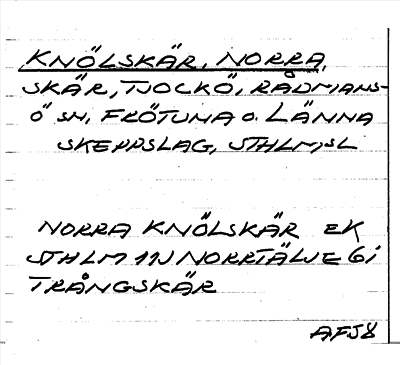 KNÖLSKÄR, NORRA,
SKÄR, TJOCKÖ, RÅDMANS-
Ö SN, FRÖTUNA O. LÄNNA
SKEPPSLAG, STHLMSL
NORRA KNÖLSKÄR EK
STHLM 11J NORRTÄLJE 6i
TRÅNGSKÄR
AFJ8